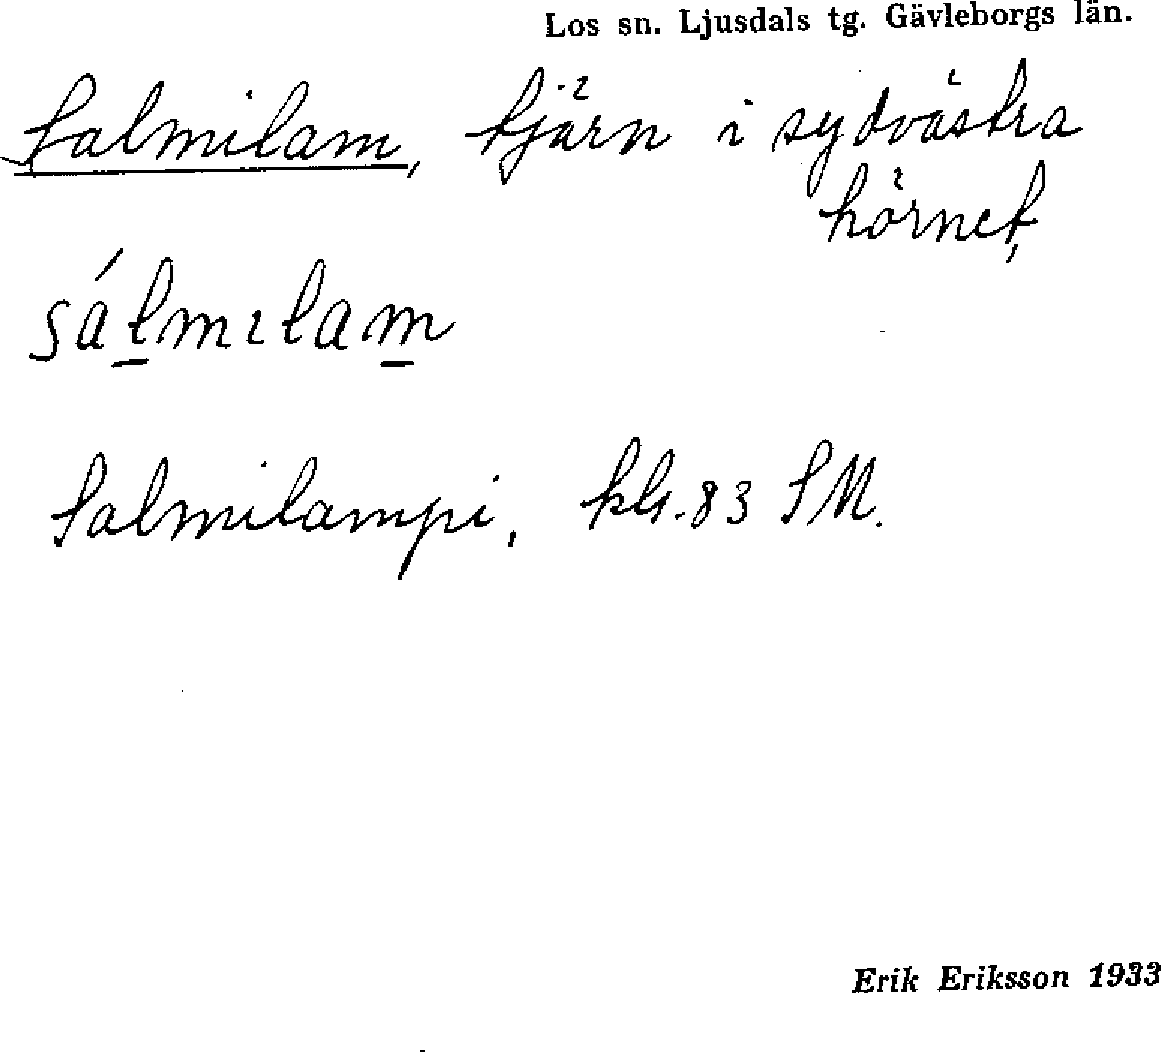 Los sn. Ljusdals tg. Gävleborgs län.
Salmilam, tjärn i sydvästra
hörnet,
sálmɩlam
Salmilampi, kls. 83 SM.
Erik Eriksson 1933